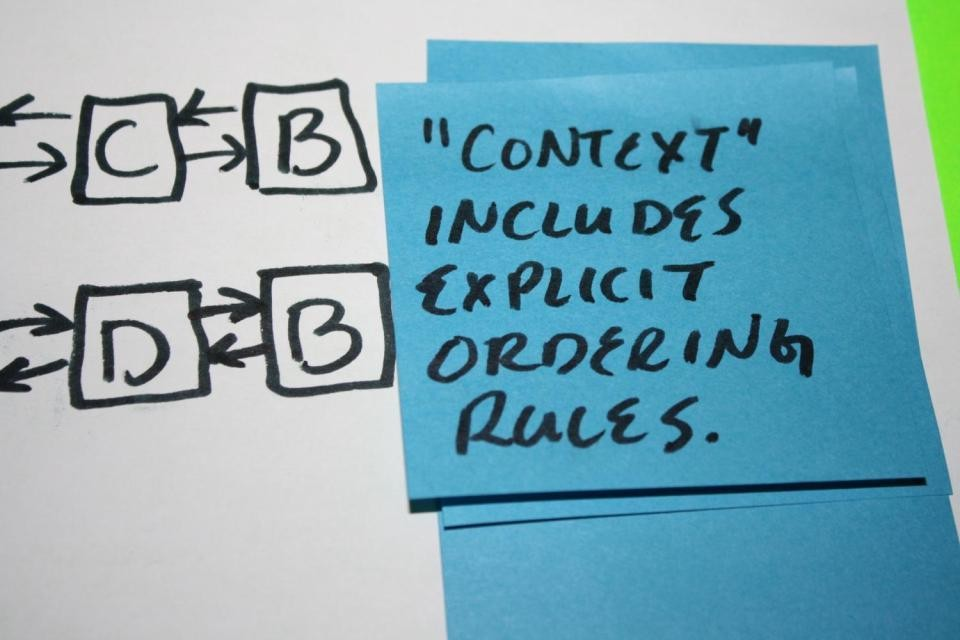 C B
D B
"CONTEXT"
INCLUDES
EXPLICIT
ORDERING
RULES.